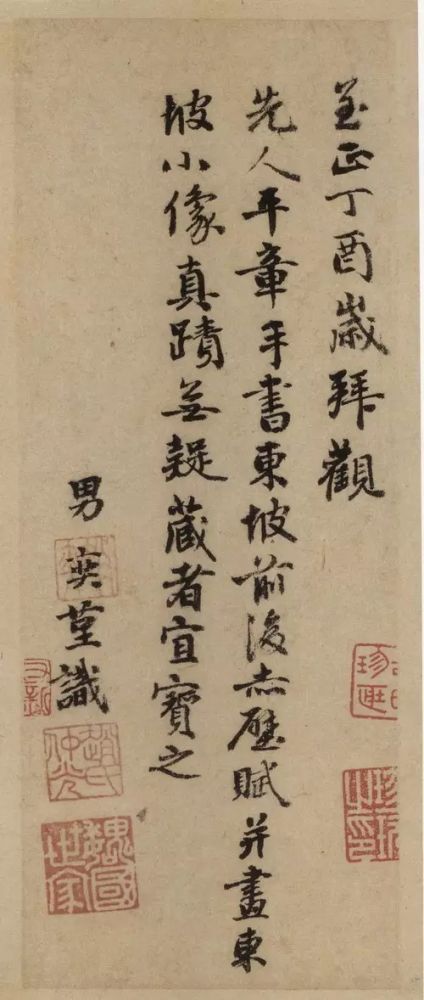 至正丁酉歲拜觀
先人平章手書東坡前後赤壁賦并畫東
坡小像真蹟無疑藏者宜寶之
男奕堇識
趙氏仲光
魏國世家